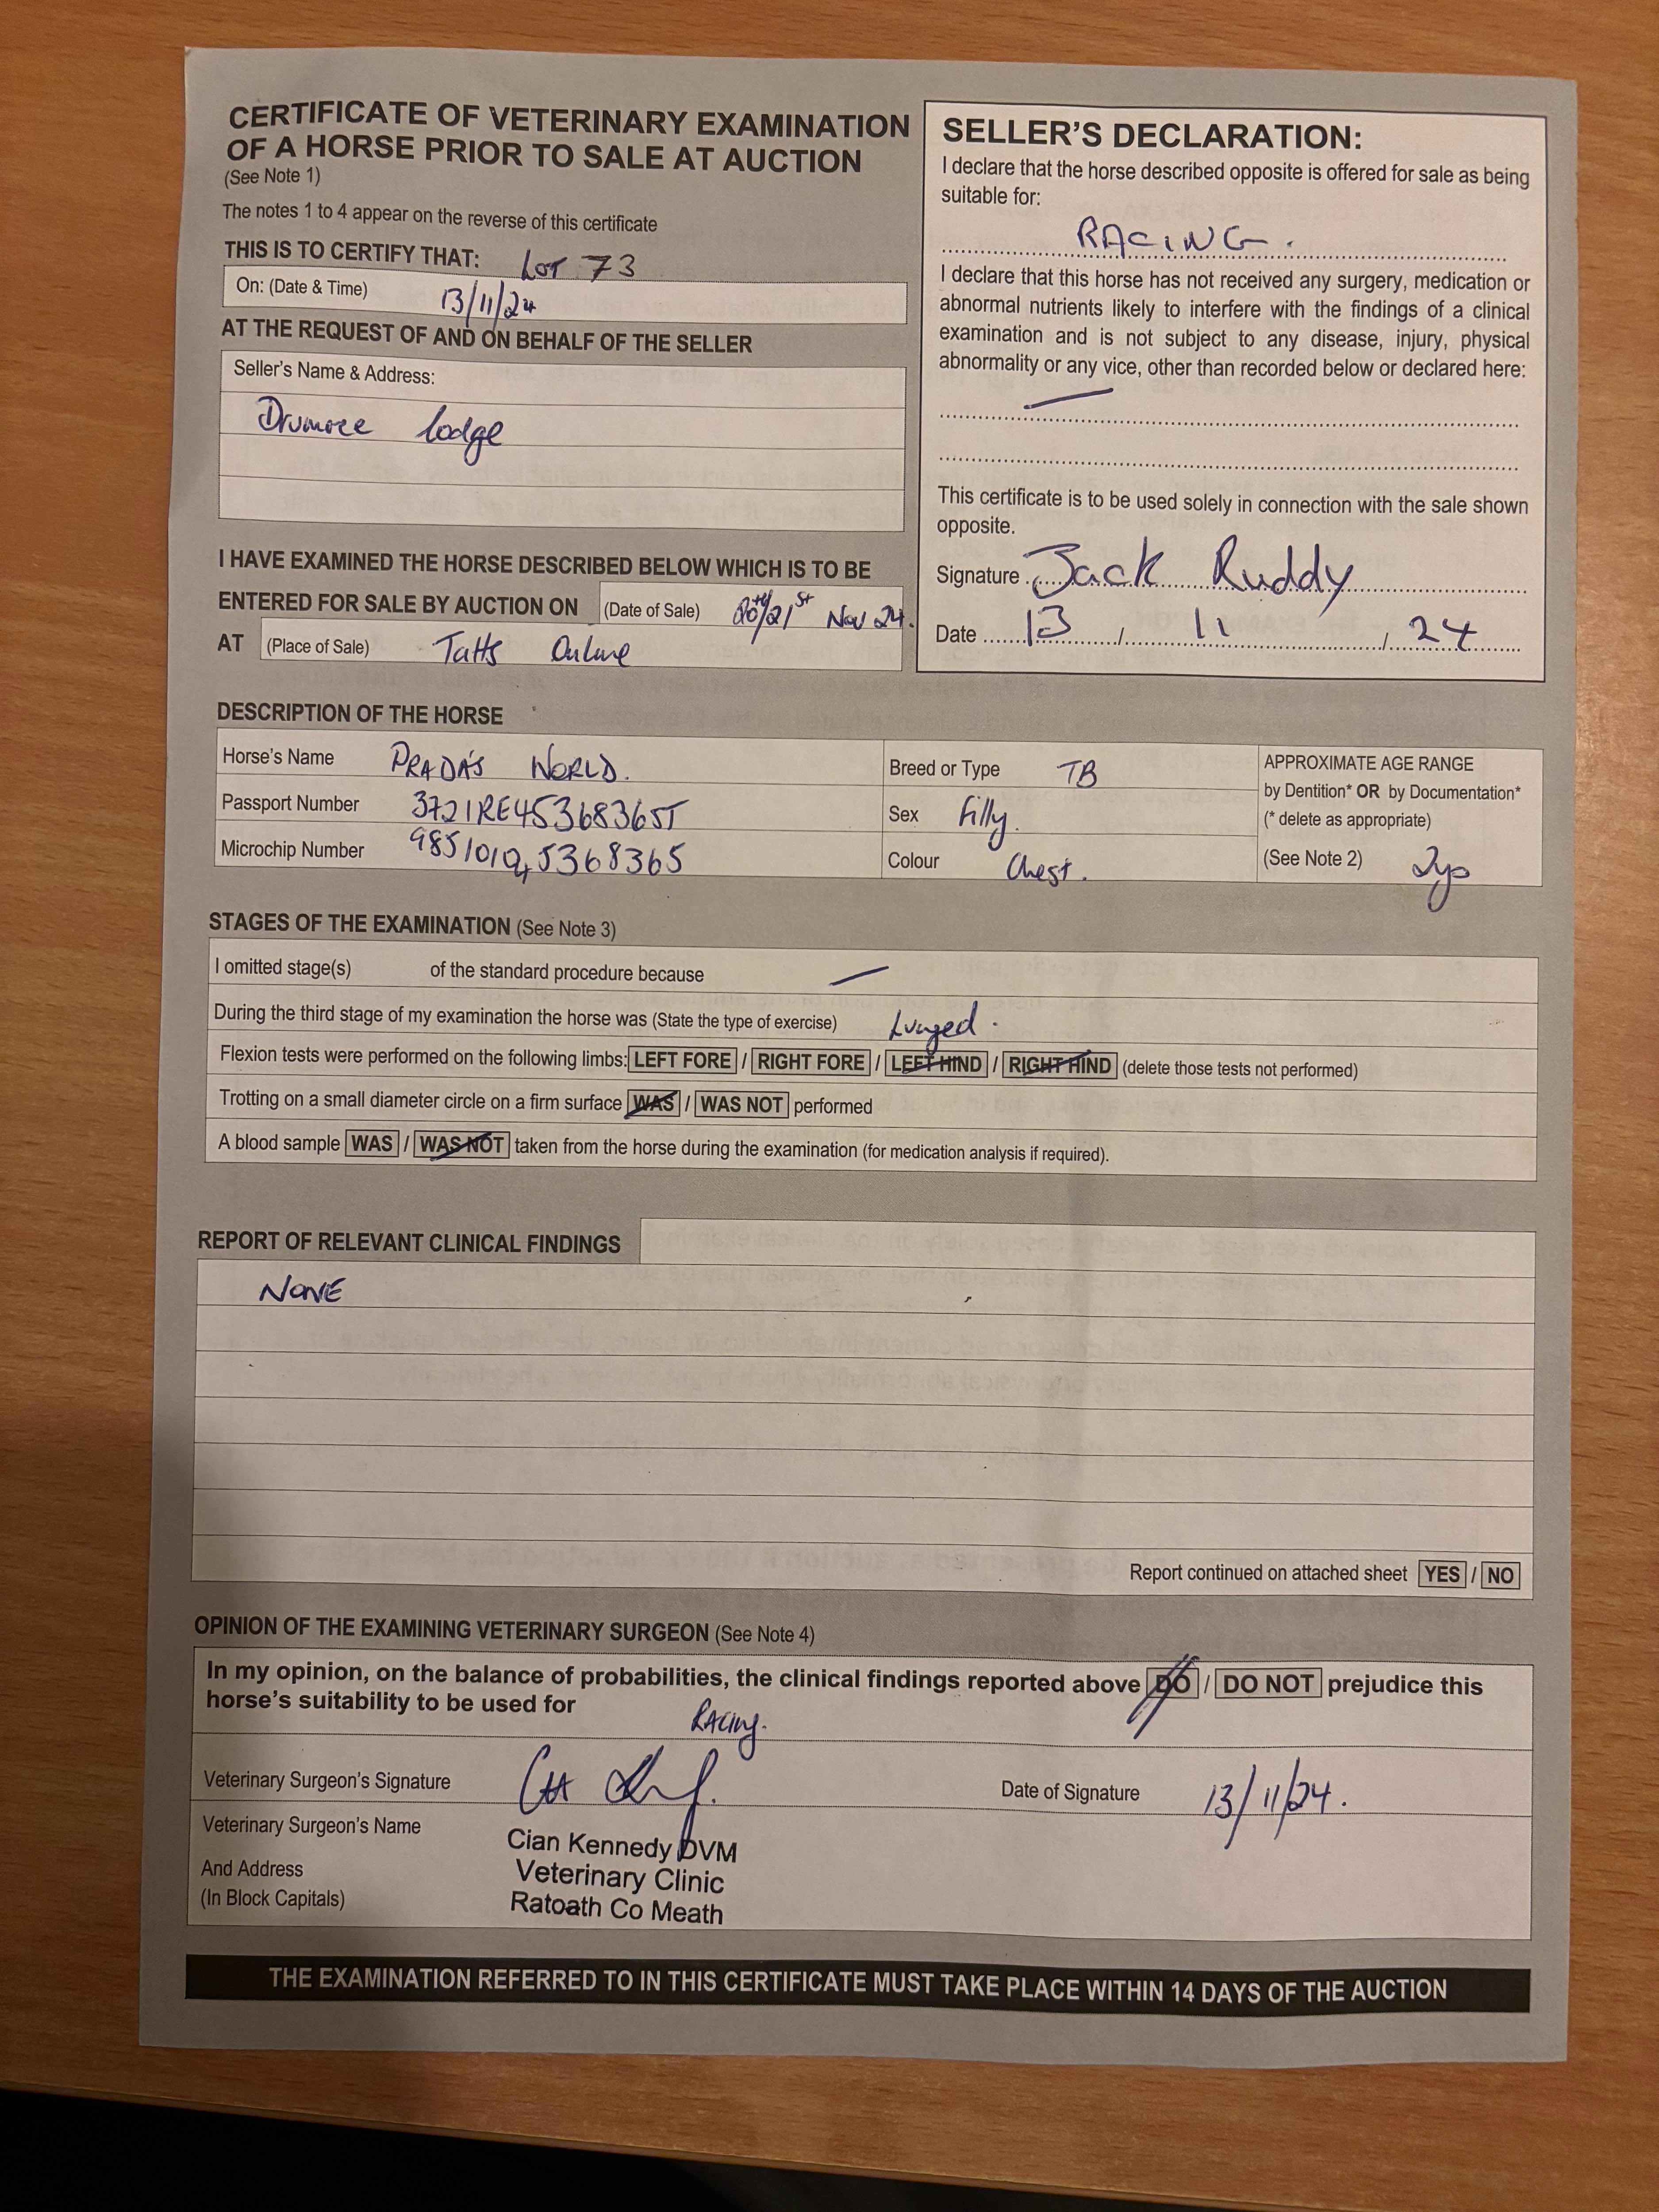 CERTIFICATE OF VETERINARY EXAMINATION
OF A HORSE PRIOR TO SALE AT AUCTION
(See Note 1)
The notes 1 to 4 appear on the reverse of this certificate
THIS IS TO CERTIFY THAT: LOT 73
On: (Date & Time) 13/11/24
AT THE REQUEST OF AND ON BEHALF OF THE SELLER
Seller's Name & Address:
Drumree lodge
I HAVE EXAMINED THE HORSE DESCRIBED BELOW WHICH IS TO BE
ENTERED FOR SALE BY AUCTION ON (Date of Sale) 20th/21st Nov 24.
AT (Place of Sale) Tatts Online
SELLER'S DECLARATION:
I declare that the horse described opposite is offered for sale as being
suitable for:
RACING.
I declare that this horse has not received any surgery, medication or
abnormal nutrients likely to interfere with the findings of a clinical
examination and is not subject to any disease, injury, physical
abnormality or any vice, other than recorded below or declared here:
This certificate is to be used solely in connection with the sale shown
opposite.
Signature Jack Ruddy
Date 13 / 11 / 24
DESCRIPTION OF THE HORSE
Horse's Name PRADA'S WORLD.
Passport Number 372IRE45368365T
Microchip Number 985101045368365
Breed or Type TB
Sex Filly.
Colour Chest.
APPROXIMATE AGE RANGE
by Dentition* OR by Documentation*
(* delete as appropriate)
(See Note 2) 2yo
STAGES OF THE EXAMINATION (See Note 3)
I omitted stage(s) of the standard procedure because —
During the third stage of my examination the horse was (State the type of exercise) Lunged.
Flexion tests were performed on the following limbs: LEFT FORE / RIGHT FORE / LEFT HIND / RIGHT HIND (delete those tests not performed)
Trotting on a small diameter circle on a firm surface WAS / WAS NOT performed
A blood sample WAS / WAS NOT taken from the horse during the examination (for medication analysis if required).
REPORT OF RELEVANT CLINICAL FINDINGS
NONE
Report continued on attached sheet YES / NO
OPINION OF THE EXAMINING VETERINARY SURGEON (See Note 4)
In my opinion, on the balance of probabilities, the clinical findings reported above DO / DO NOT prejudice this
horse's suitability to be used for Racing.
Veterinary Surgeon's Signature
Date of Signature 13/11/24.
Veterinary Surgeon's Name
And Address
(In Block Capitals)
Cian Kennedy DVM
Veterinary Clinic
Ratoath Co Meath
THE EXAMINATION REFERRED TO IN THIS CERTIFICATE MUST TAKE PLACE WITHIN 14 DAYS OF THE AUCTION